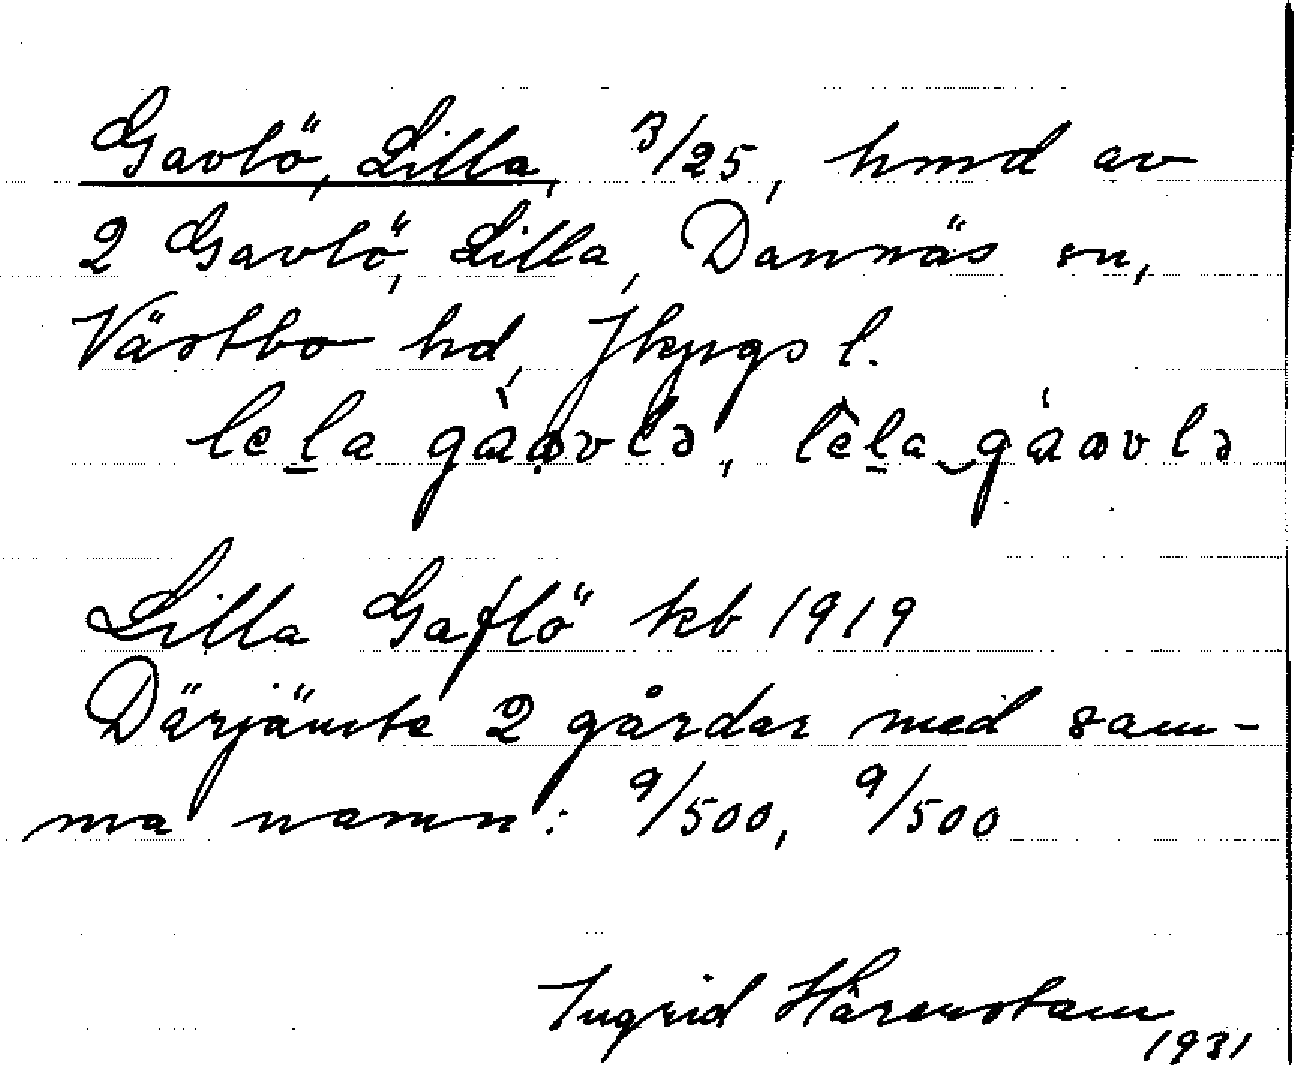 Gavlö, Lilla, 3/25, hmd av
2 Gavlö, Lilla, Dannäs sn,
Västbo hd, Jkpgs l.
lela gàavlə, lela gáavlə
Lilla Gaflö kb 1919
Därjämte 2 gårdar med sam-
ma namn: 9/500, 9/500
Ingrid Hårenstam
1931